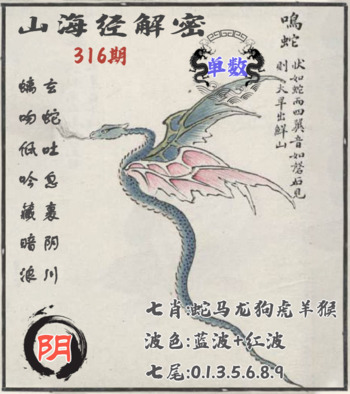 山海经解密
316期
单数
鸣蛇
状如蛇而四翼音如磬石见
则大旱出鲜山
玄蛇吐息裹阴川
螭吻低吟藏暗浪
阴
七肖:蛇马龙狗虎羊猴
波色:蓝波+红波
七尾:0.1.3.5.6.8.9